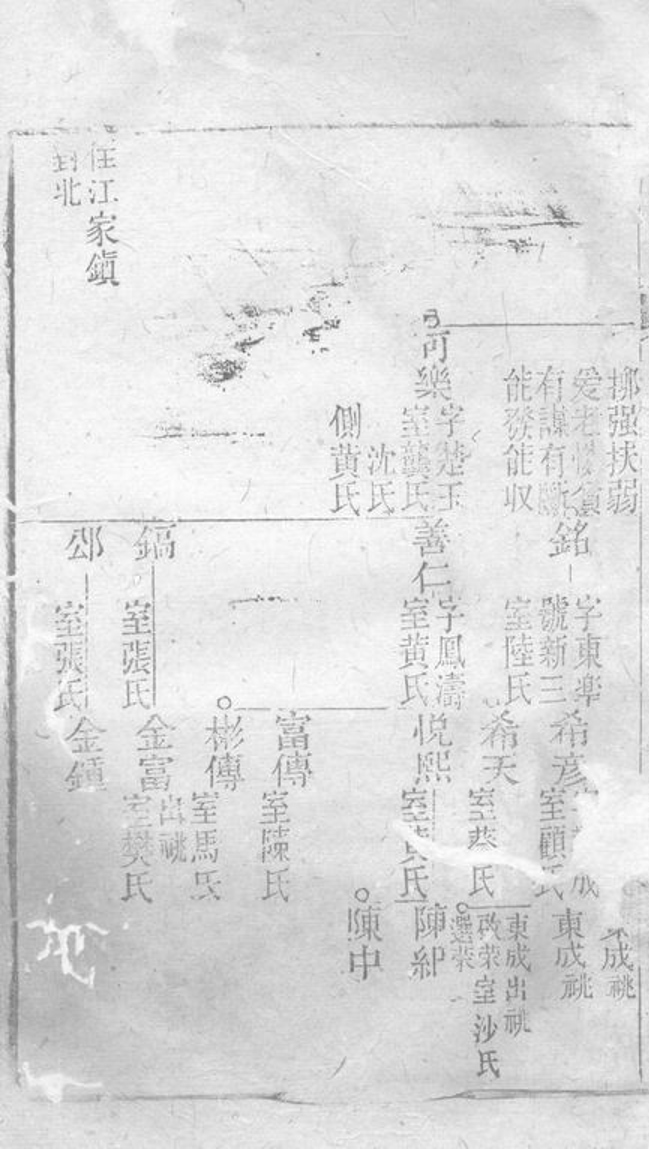 挪强扶弱
爱老憐貧
有謀有斷
能發能収
可樂
字楚玉
室龔氏
沈氏
側黄氏
住江家鎮
北
銘
字東樂
號新三
室陸氏
善仁
字鳳濤
室黄氏
鎬
室張氏
邵
室張氏
希彦
室顧氏
希天
室蔡氏
悦熙
室黄氏
富傳
室陳氏
彬傳
室馬氏
金富
出祧
室樊氏
金鍾
成祧
東成祧
東成出祧
啟荣室沙氏
選荣
陳卹
陳中